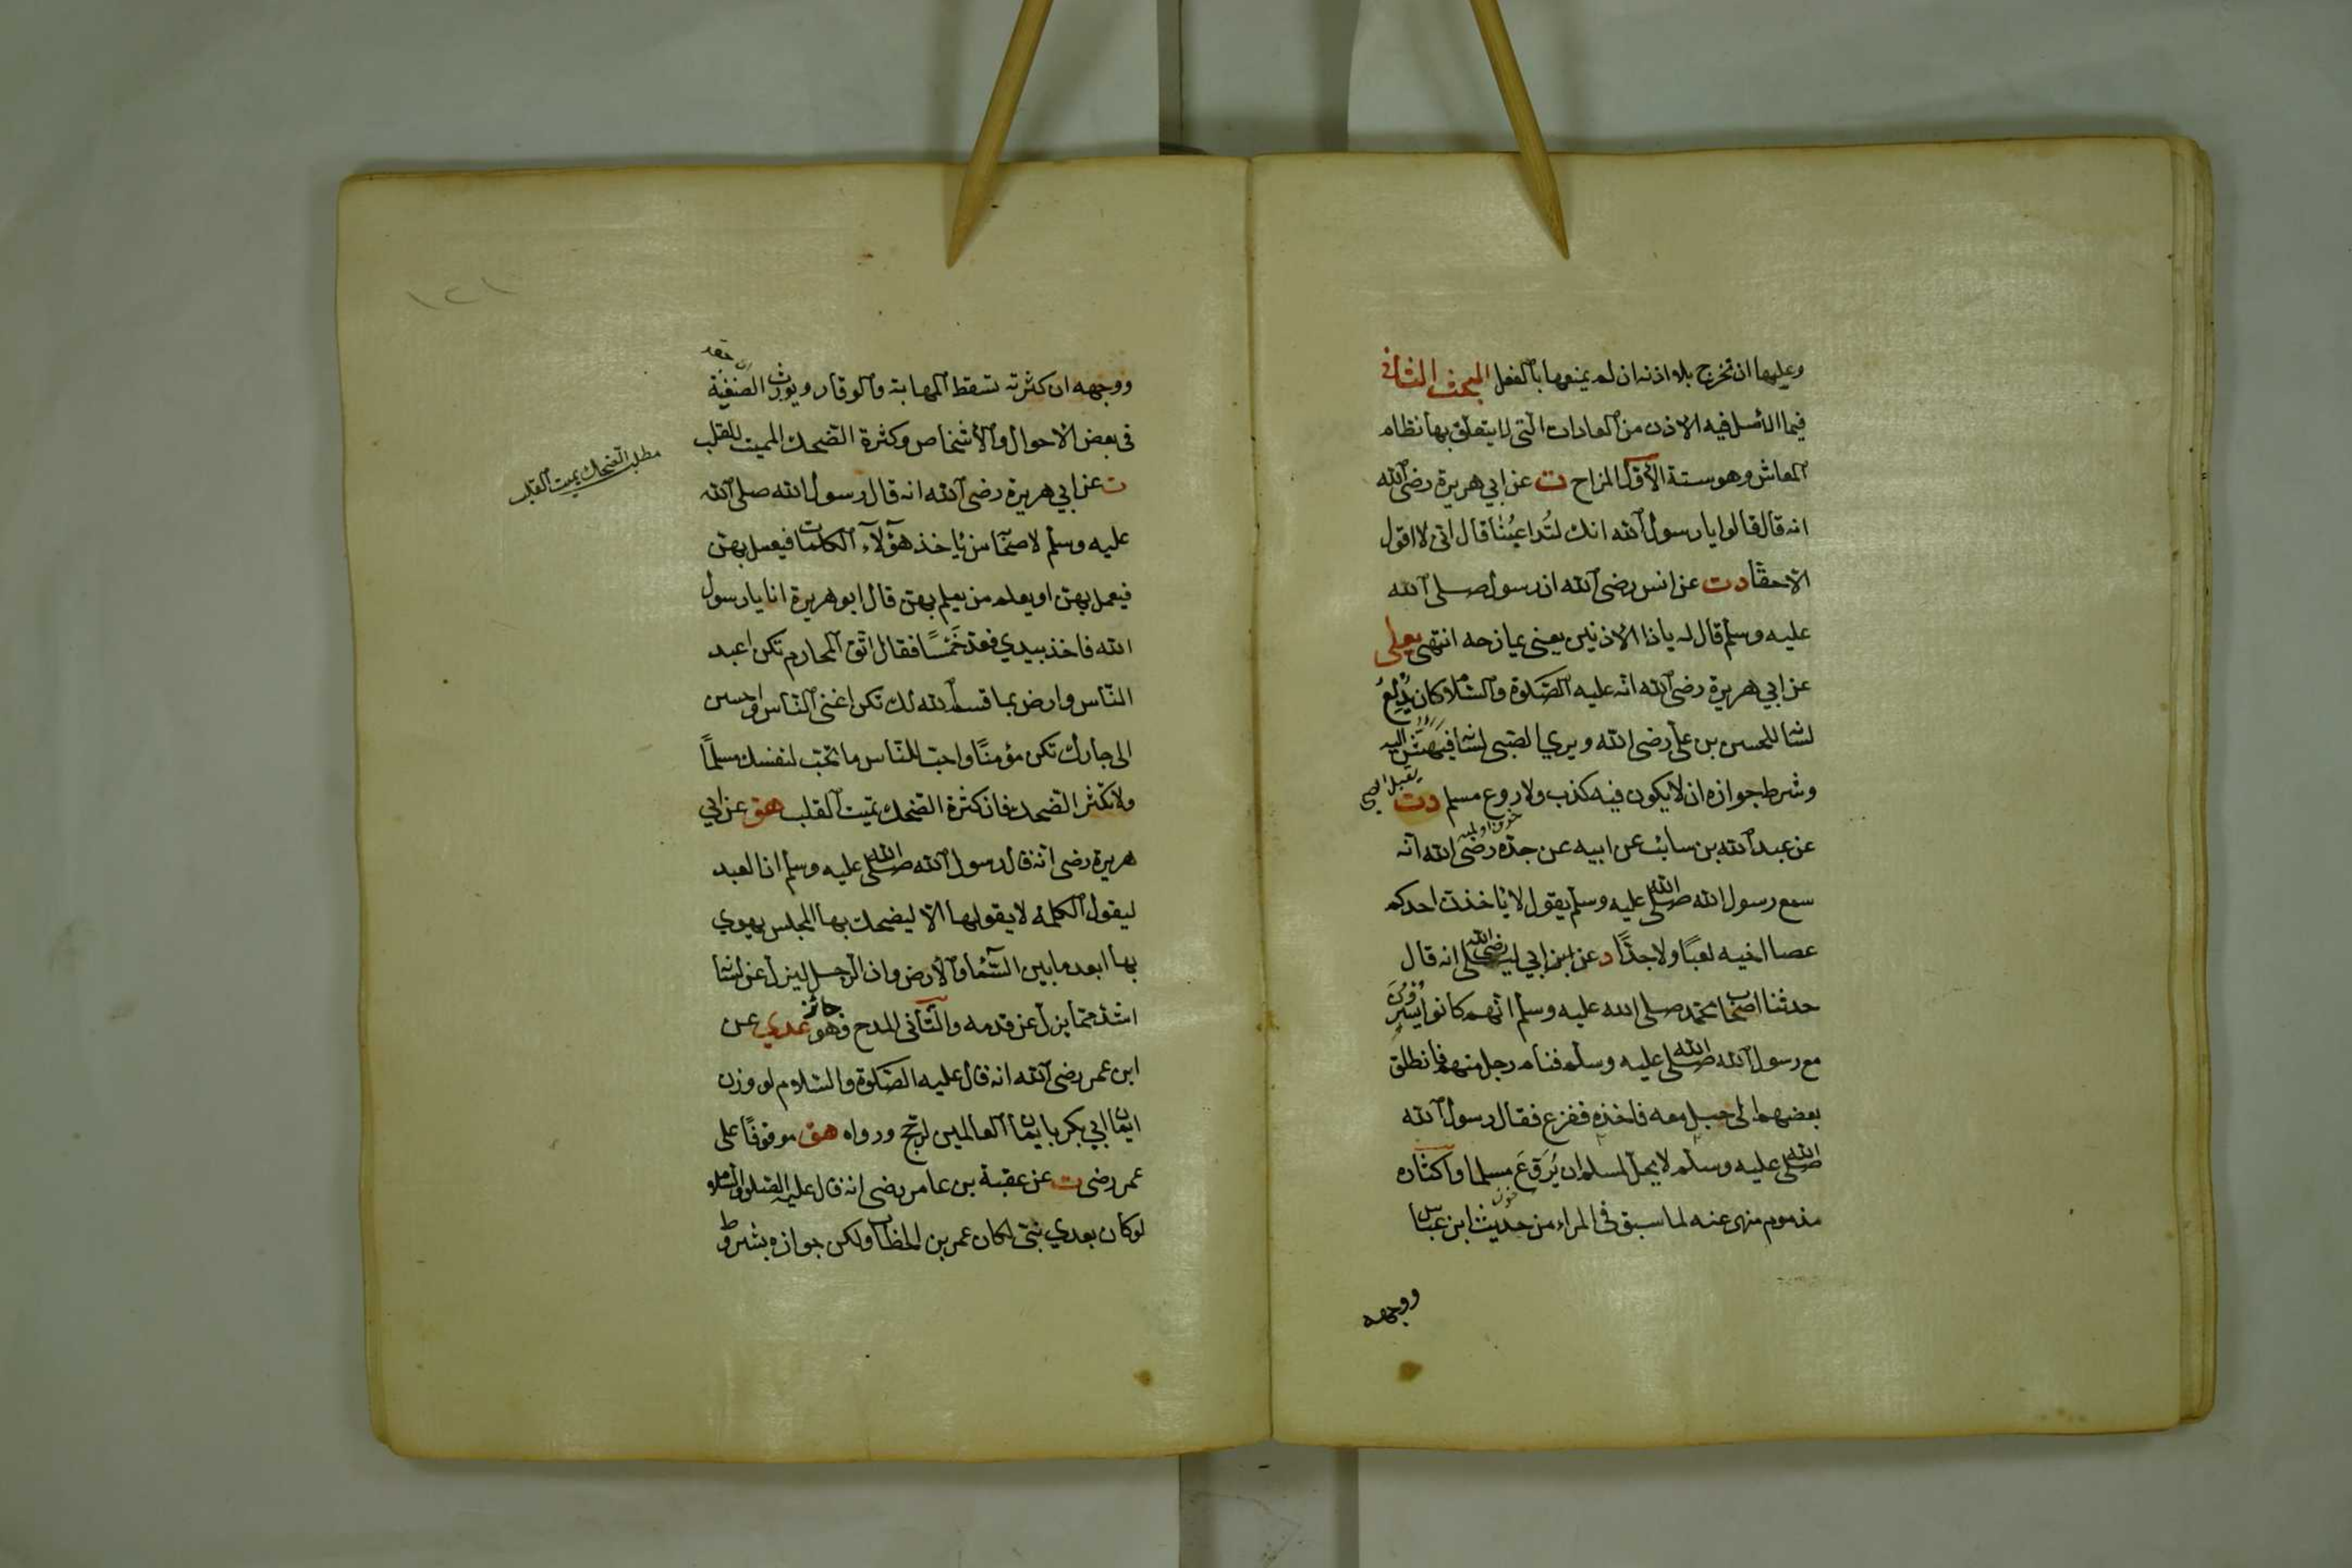 وعليها ان تخرج بلا اذنه ان لم يمنعها بالفعل المبحث الثانى
فيما الاصل فيه الاذن من العادات التى لا يتعلق بها نظام
المعاش وهو ستة الاول المزاح ت عن ابي هريرة رضى الله
انه قال قالوا يا رسول الله انك لتُداعِبُنا قال انى لا اقول
الا حقا دت عن انس رضى الله ان رسول صلى الله
عليه وسلم قال له ياذا الاذنين يعنى يمازحه انتهى يعلى
عن ابي هريرة رضى الله انه عليه الصلوة والسلام كان يُدلِعُ
لسانه للحسن بن على رضى الله ويري الصبى لسانه فيَهَشُّ اليه
يقبل الصبى
وشرط جوازه ان لا يكون فيه كذب ولا روع مسلم دت
عن عبد الله بن سائب عن ابيه عن جده رضى الله انه
سمع رسول الله صلى الله عليه وسلم يقول لا ياخذن احدكم
عصا اخيه لعبًا ولا جدًّا د عن ابن ابي ليلى رضى الله انه قال
حدثنا اصحاب محمد صلى الله عليه وسلم انهم كانوا يسيرون
مع رسول الله صلى الله عليه وسلم فنام رجل منهم فانطلق
بعضهم الى حبل معه فاخذه ففزع فقال رسول الله
صلى الله عليه وسلم لا يحل لمسلم ان يُرَوِّعَ مسلما واكثاره
مذموم منهى عنه لما سبق فى المراء من حديث ابن عباس
ووجهه
١٢١
ووجهه ان كثرته تسقط المهابة والوقار ويورث الضغينة
فى بعض الاحوال والاشخاص وكثرة الضحك المميت للقلب
مطلب الضحك يميت القلب
ت عن ابي هريرة رضى الله انه قال رسول الله صلى الله
عليه وسلم لاصحابه من ياخذ هؤلاء الكلمات فيعمل بهن
فيعمل بهن او يعلم من يعلم بهن قال ابو هريرة انا يا رسول
الله فاخذ بيدي فعد خَمْسًا فقال اتق المحارم تكن اعبد
الناس وارض بما قسم الله لك تكن اغنى الناس واحسن
الى جارك تكن مؤمنًا واحب للناس ما تحب لنفسك مسلمًا
ولا تكثر الضحك فان كثرة الضحك تميت القلب هق عن ابي
هريرة رضى انه قال رسول الله صلى الله عليه وسلم ان العبد
ليقول الكلمة لا يقولها الا ليضحك بها المجلس يهوي
بها ابعد ما بين السماء والارض وان الرجل ليزل عن لسانه
اشد مما يزل عن قدمه والثانى المدح وهو جائز عدي عن
ابن عمر رضى الله انه قال عليه الصلوة والسلام لو وزن
ايمان ابي بكر بايمان العالمين لرجح ورواه هق موقوفًا على
عمر رضى ت عن عقبة بن عامر رضى انه قال عليه الصلوة والسلام
لو كان بعدي نبى لكان عمر بن الخطاب ولكن جوازه بشروط